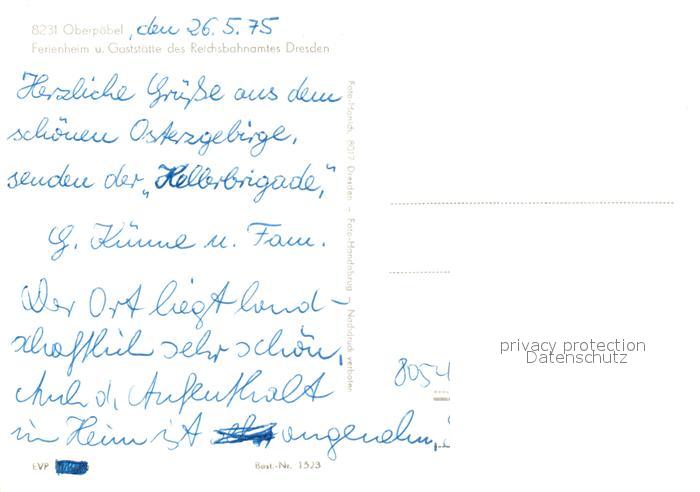 8231 Oberpöbel, den 26.5.75
Ferienheim u. Gaststätte des Reichsbahnamtes Dresden
Herzliche Grüße aus dem
schönen Osterzgebirge,
senden der „Kellerbrigade“,
G. Künne u. Fam.
Der Ort liegt land-
schaftlich sehr schön,
Auch d. Aufenthalt
im Heim ist angenehm,
EVP
Best.-Nr. 1323
Foto-Manich, 8017 Dresden – Foto-Handabzug – Nachdruck verboten
8054
privacy protection
Datenschutz